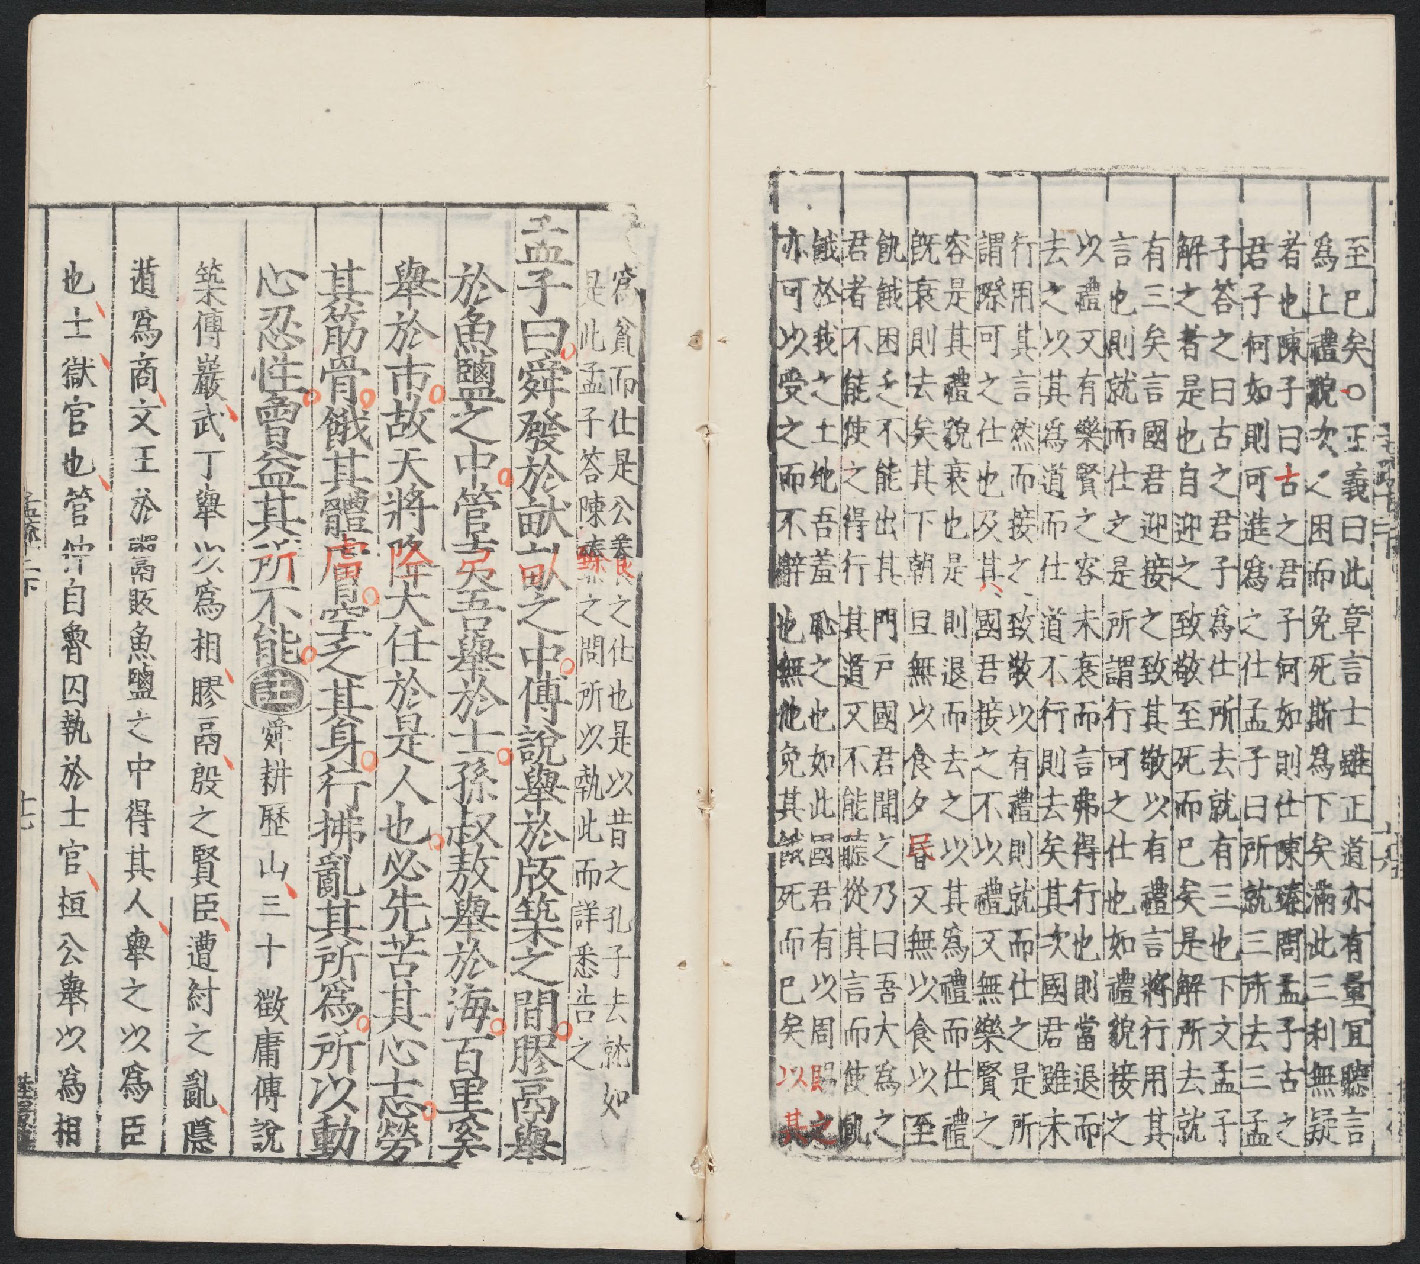 至巳矣○正義曰此章言士雖正道亦有量宜聽言
為上禮貌次之困而免死斯為下矣滿此三利無疑
者也陳子曰古之君子何如則仕陳臻問孟子古之
君子何如則可進為之仕孟子曰所就三所去三孟
子答之曰古之君子為仕所去就有三也下文孟子
解之者是也自迎之致敬至死而巳矣是解所去就
有三矣言國君迎接之致其敬以有禮言將行用其
言也則就而仕之是所謂行可之仕也如禮貌接之
以禮又有樂賢之容未衰而言弗得行也則當退而
去之以其為道而仕道不行則去矣其次國君雖未
行用其言然而接之致敬以有禮則就而仕之是所
謂際可之仕也及其國君接之不以禮又無樂賢之
容是其禮貌衰也是則退而去之以其為禮而仕禮
旣衰則去矣其下朝旦無以食夕昬又無以食以至
飢餓困乏不能出其門戸國君聞之乃曰吾大為之
君者不能使之得行其道又不能聽從其言而使飢
餓於我之土地吾羞恥之也如此國君有以周賜之
亦可以受之而不辭也無他免其餓死而巳矣以其
為貧而仕是公養之仕也是以昔之孔子去就如
是此孟子答陳臻之問所以執此而詳悉告之
孟子曰舜發於畎畝之中傅說舉於版築之間膠鬲舉
於魚鹽之中管夷吾舉於士孫叔敖舉於海百里奚
舉於市故天將降大任於是人也必先苦其心志勞
其筋骨餓其體膚空乏其身行拂亂其所為所以動
心忍性曾益其所不能註舜耕歷山三十徵庸傅說
築傅巖武丁舉以為相膠鬲殷之賢臣遭紂之亂隱
遁為商文王於鬻販魚鹽之中得其人舉之以為臣
也士獄官也管仲自魯囚執於士官桓公舉以為相